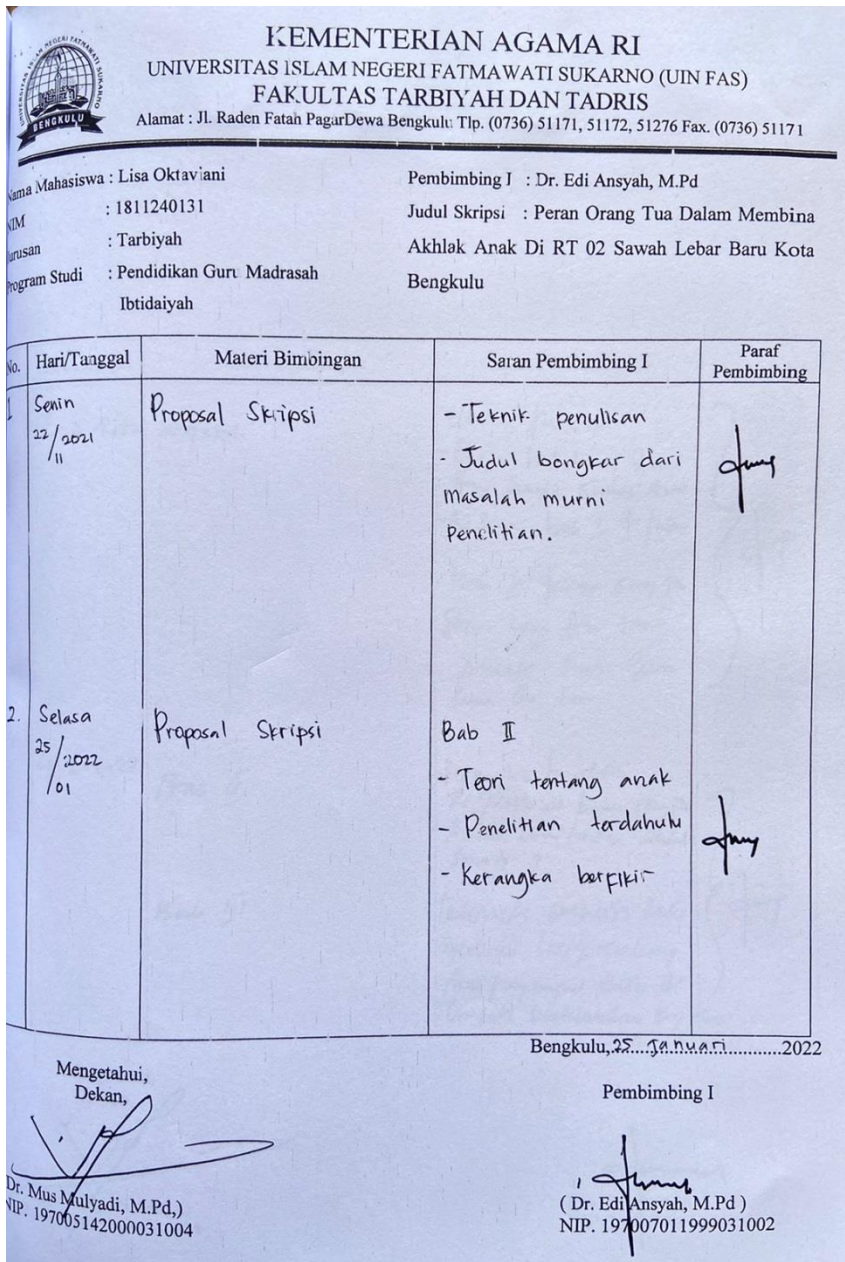 KEMENTERIAN AGAMA RI
UNIVERSITAS ISLAM NEGERI FATMAWATI SUKARNO (UIN FAS)
FAKULTAS TARBIYAH DAN TADRIS
Alamat : Jl. Raden Fatah PagarDewa Bengkulu Tlp. (0736) 51171, 51172, 51276 Fax. (0736) 51171
BENGKULU
Nama Mahasiswa : Lisa Oktaviani
NIM : 1811240131
Jurusan : Tarbiyah
Program Studi : Pendidikan Guru Madrasah
Ibtidaiyah
Pembimbing I : Dr. Edi Ansyah, M.Pd
Judul Skripsi : Peran Orang Tua Dalam Membina
Akhlak Anak Di RT 02 Sawah Lebar Baru Kota
Bengkulu
No. Hari/Tanggal Materi Bimbingan Saran Pembimbing I Paraf Pembimbing
1 Senin Proposal Skripsi - Teknik penulisan
22/11/2021 - Judul bongkar dari
masalah murni
Penelitian.
2. Selasa Proposal Skripsi Bab II
25/01/2022 - Teori tentang anak
- Penelitian terdahulu
- Kerangka berfikir
Bengkulu, 25 Januari 2022
Mengetahui,
Dekan,
Dr. Mus Mulyadi, M.Pd,)
NIP. 197005142000031004
Pembimbing I
( Dr. Edi Ansyah, M.Pd )
NIP. 197007011999031002